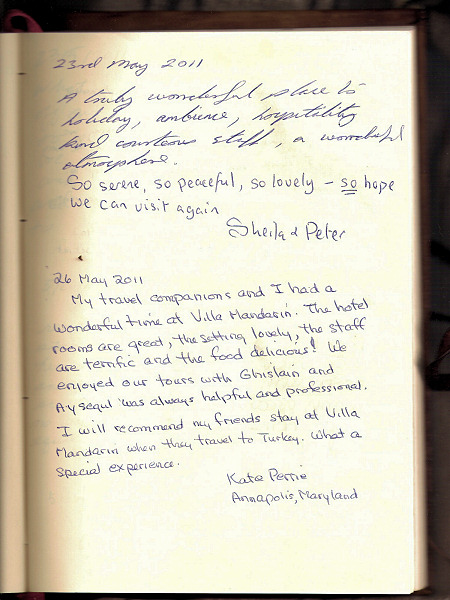 23rd May 2011
A truly wonderful place to
holiday, ambience, hospitality
kind courteous staff, a wonderful
atmosphere.
So serene, so peaceful, so lovely - so hope
we can visit again
Sheila & Peter
26 May 2011
My travel companions and I had a
wonderful time at Villa Mandarin. The hotel
rooms are great, the setting lovely, the staff
are terrific and the food delicious! We
enjoyed our tours with Ghislain and
Aysegul was always helpful and professional.
I will recommend my friends stay at Villa
Mandarin when they travel to Turkey. What a
special experience.
Kate
Annapolis, Maryland